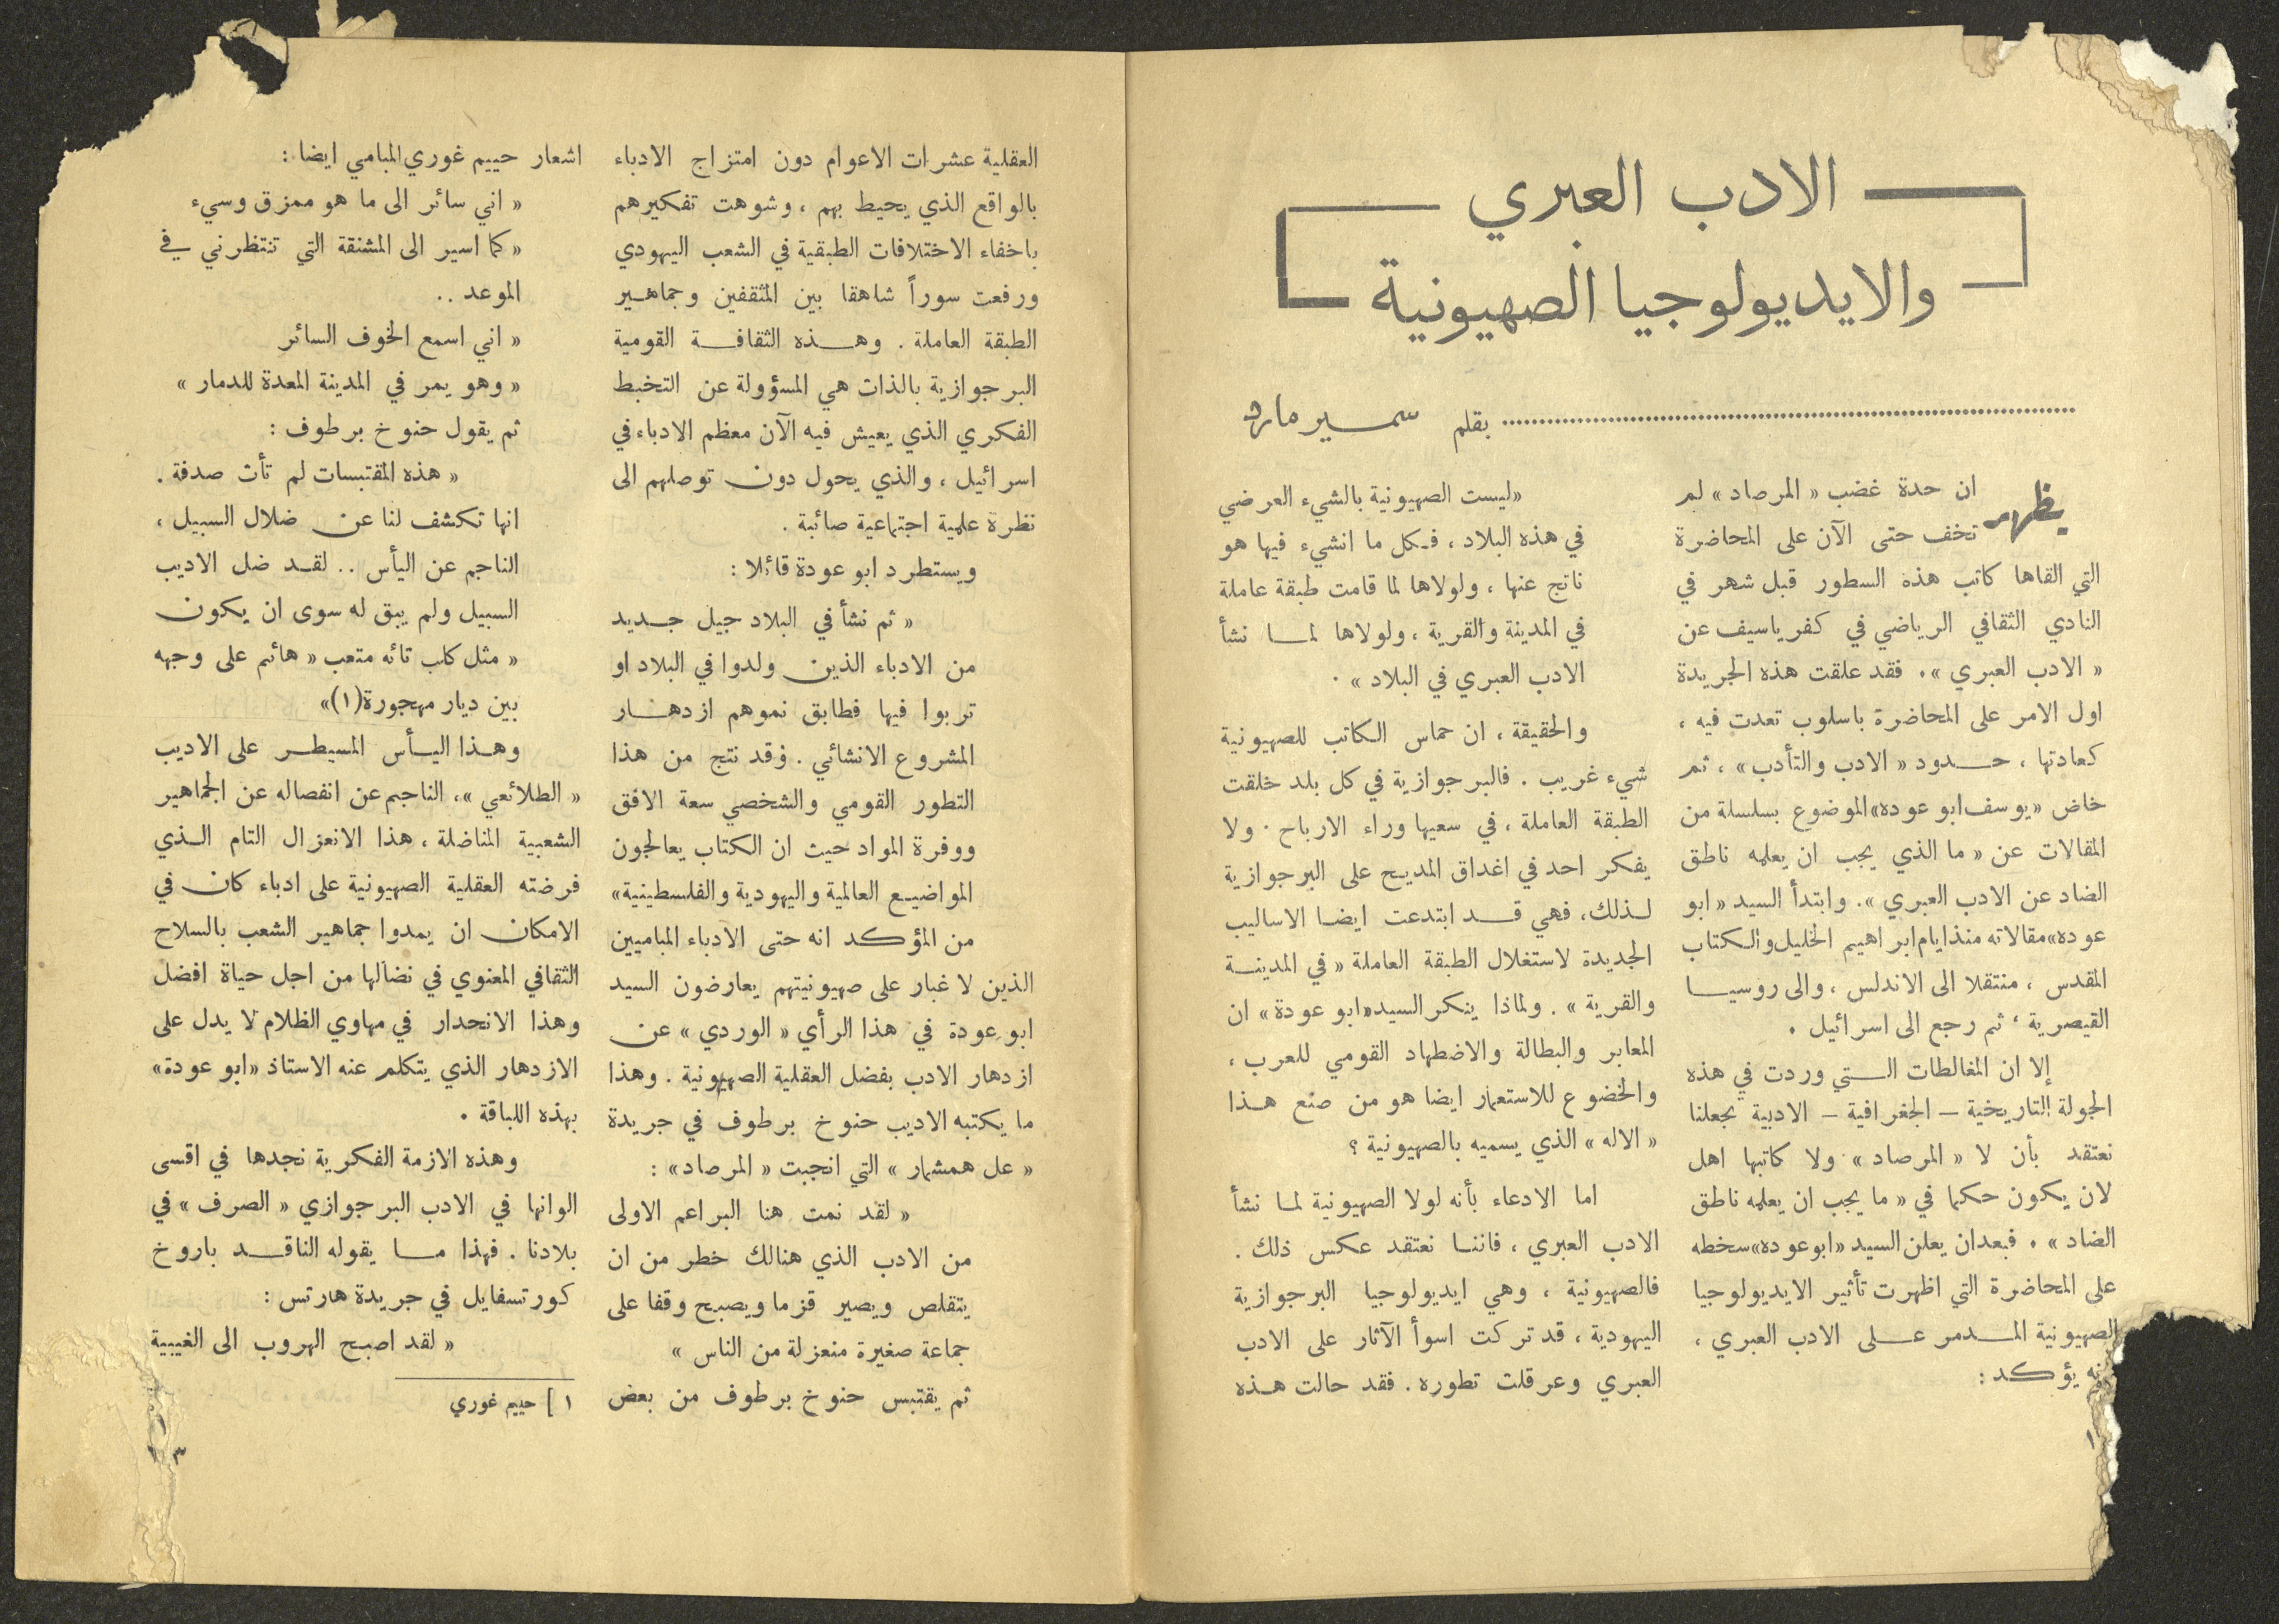 الادب العبري
والايديولوجيا الصهيونية
بقلم سمير مارد
يظهر ان حدة غضب « المرصاد » لم
تخف حتى الآن على المحاضرة
التي القاها كاتب هذه السطور قبل شهر في
النادي الثقافي الرياضي في كفر ياسيف عن
« الادب العبري » . فقد علقت هذه الجريدة
اول الامر على المحاضرة باسلوب تعدت فيه ،
كعادتها ، حدود « الادب والتأدب » ، ثم
خاض «يوسف ابو عوده» الموضوع بسلسلة من
المقالات عن « ما الذي يجب ان يعلمه ناطق
الضاد عن الادب العبري » . وابتدأ السيد « ابو
عوده» مقالاته منذ ايام ابراهيم الخليل والكتاب
المقدس ، منتقلا الى الاندلس ، والى روسيا
القيصرية ، ثم رجع الى اسرائيل .
إلا ان المغالطات التي وردت في هذه
الجولة التاريخية - الجغرافية - الادبية تجعلنا
نعتقد بأن لا « المرصاد » ولا كاتبها اهل
لان يكون حكما في « ما يجب ان يعلمه ناطق
الضاد » . فبعدان يعلن السيد «ابو عوده» سخطه
على المحاضرة التي اظهرت تأثير الايديولوجيا
الصهيونية المدمر على الادب العبري ،
يؤكد :
«ليست الصهيونية بالشيء العرضي
في هذه البلاد ، فكل ما انشيء فيها هو
ناتج عنها ، ولولاها لما قامت طبقة عاملة
في المدينة والقرية ، ولولاها لما نشأ
الادب العبري في البلاد » .
والحقيقة ، ان حماس الكاتب للصهيونية
شيء غريب . فالبرجوازية في كل بلد خلقت
الطبقة العاملة ، في سعيها وراء الارباح . ولا
يفكر احد في اغداق المديح على البرجوازية
لذلك، فهي قد ابتدعت ايضا الاساليب
الجديدة لاستغلال الطبقة العاملة « في المدينة
والقرية » . ولماذا ينكر السيد «ابو عودة» ان
المعابر والبطالة والاضطهاد القومي للعرب ،
والخضوع للاستعمار ايضا هو من صنع هذا
« الاله » الذي يسميه بالصهيونية ؟
اما الادعاء بأنه لولا الصهيونية لما نشأ
الادب العبري ، فاننا نعتقد عكس ذلك .
فالصهيونية ، وهي ايديولوجيا البرجوازية
اليهودية ، قد تركت اسوأ الآثار على الادب
العبري وعرقلت تطوره . فقد حالت هذه
العقلية عشرات الاعوام دون امتزاج الادباء
بالواقع الذي يحيط بهم ، وشوهت تفكيرهم
باخفاء الاختلافات الطبقية في الشعب اليهودي
ورفعت سوراً شاهقا بين المثقفين وجماهير
الطبقة العاملة . وهذه الثقافة القومية
البرجوازية بالذات هي المسؤولة عن التخبط
الفكري الذي يعيش فيه الآن معظم الادباء في
اسرائيل ، والذي يحول دون توصلهم الى
نظرة علمية اجتماعية صائبة .
ويستطرد ابو عودة قائلا :
« ثم نشأ في البلاد جيل جديد
من الادباء الذين ولدوا في البلاد او
تربوا فيها فطابق نموهم ازدهار
المشروع الانشائي . وقد نتج من هذا
التطور القومي والشخصي سعة الافق
ووفرة المواد حيث ان الكتاب يعالجون
المواضيع العالمية واليهودية والفلسطينية»
من المؤكد انه حتى الادباء المباميين
الذين لا غبار على صهيونيتهم يعارضون السيد
ابو عودة في هذا الرأي « الوردي » عن
ازدهار الادب بفضل العقلية الصهيونية . وهذا
ما يكتبه الاديب حنوخ برطوف في جريدة
« عل همشمار » التي انجبت « المرصاد» :
« لقد نمت هنا البراعم الاولى
من الادب الذي هنالك خطر من ان
يتقلص ويصير قزما ويصبح وقفا على
جماعة صغيرة منعزلة من الناس »
ثم يقتبس حنوخ برطوف من بعض
اشعار حييم غوري المبامي ايضا :
« اني سائر الى ما هو ممزق وسيء
« كما اسير الى المشنقة التي تنتظرني في
الموعد ..
« اني اسمع الخوف السائر
« وهو يمر في المدينة المعدة للدمار »
ثم يقول حنوخ برطوف :
« هذه المقتبسات لم تأت صدفة .
انها تكشف لنا عن ضلال السبيل ،
الناجم عن اليأس .. لقد ضل الاديب
السبيل ولم يبق له سوى ان يكون
« مثل كلب تائه متعب « هائم على وجهه
بين ديار مهجورة(١)»
وهذا اليأس المسيطر على الاديب
« الطلائعي »، الناجم عن انفصاله عن الجماهير
الشعبية المناضلة ، هذا الانعزال التام الذي
فرضته العقلية الصهيونية على ادباء كان في
الامكان ان يمدوا جماهير الشعب بالسلاح
الثقافي المعنوي في نضالها من اجل حياة افضل
وهذا الانحدار في مهاوي الظلام لا يدل على
الازدهار الذي يتكلم عنه الاستاذ «ابو عودة»
بهذه اللباقة .
وهذه الازمة الفكرية نجدها في اقسى
الوانها في الادب البرجوازي « الصرف » في
بلادنا . فهذا ما يقوله الناقد باروخ
كورتسفايل في جريدة هارتس :
« لقد اصبح الهروب الى الغيبية
١ ] حييم غوري